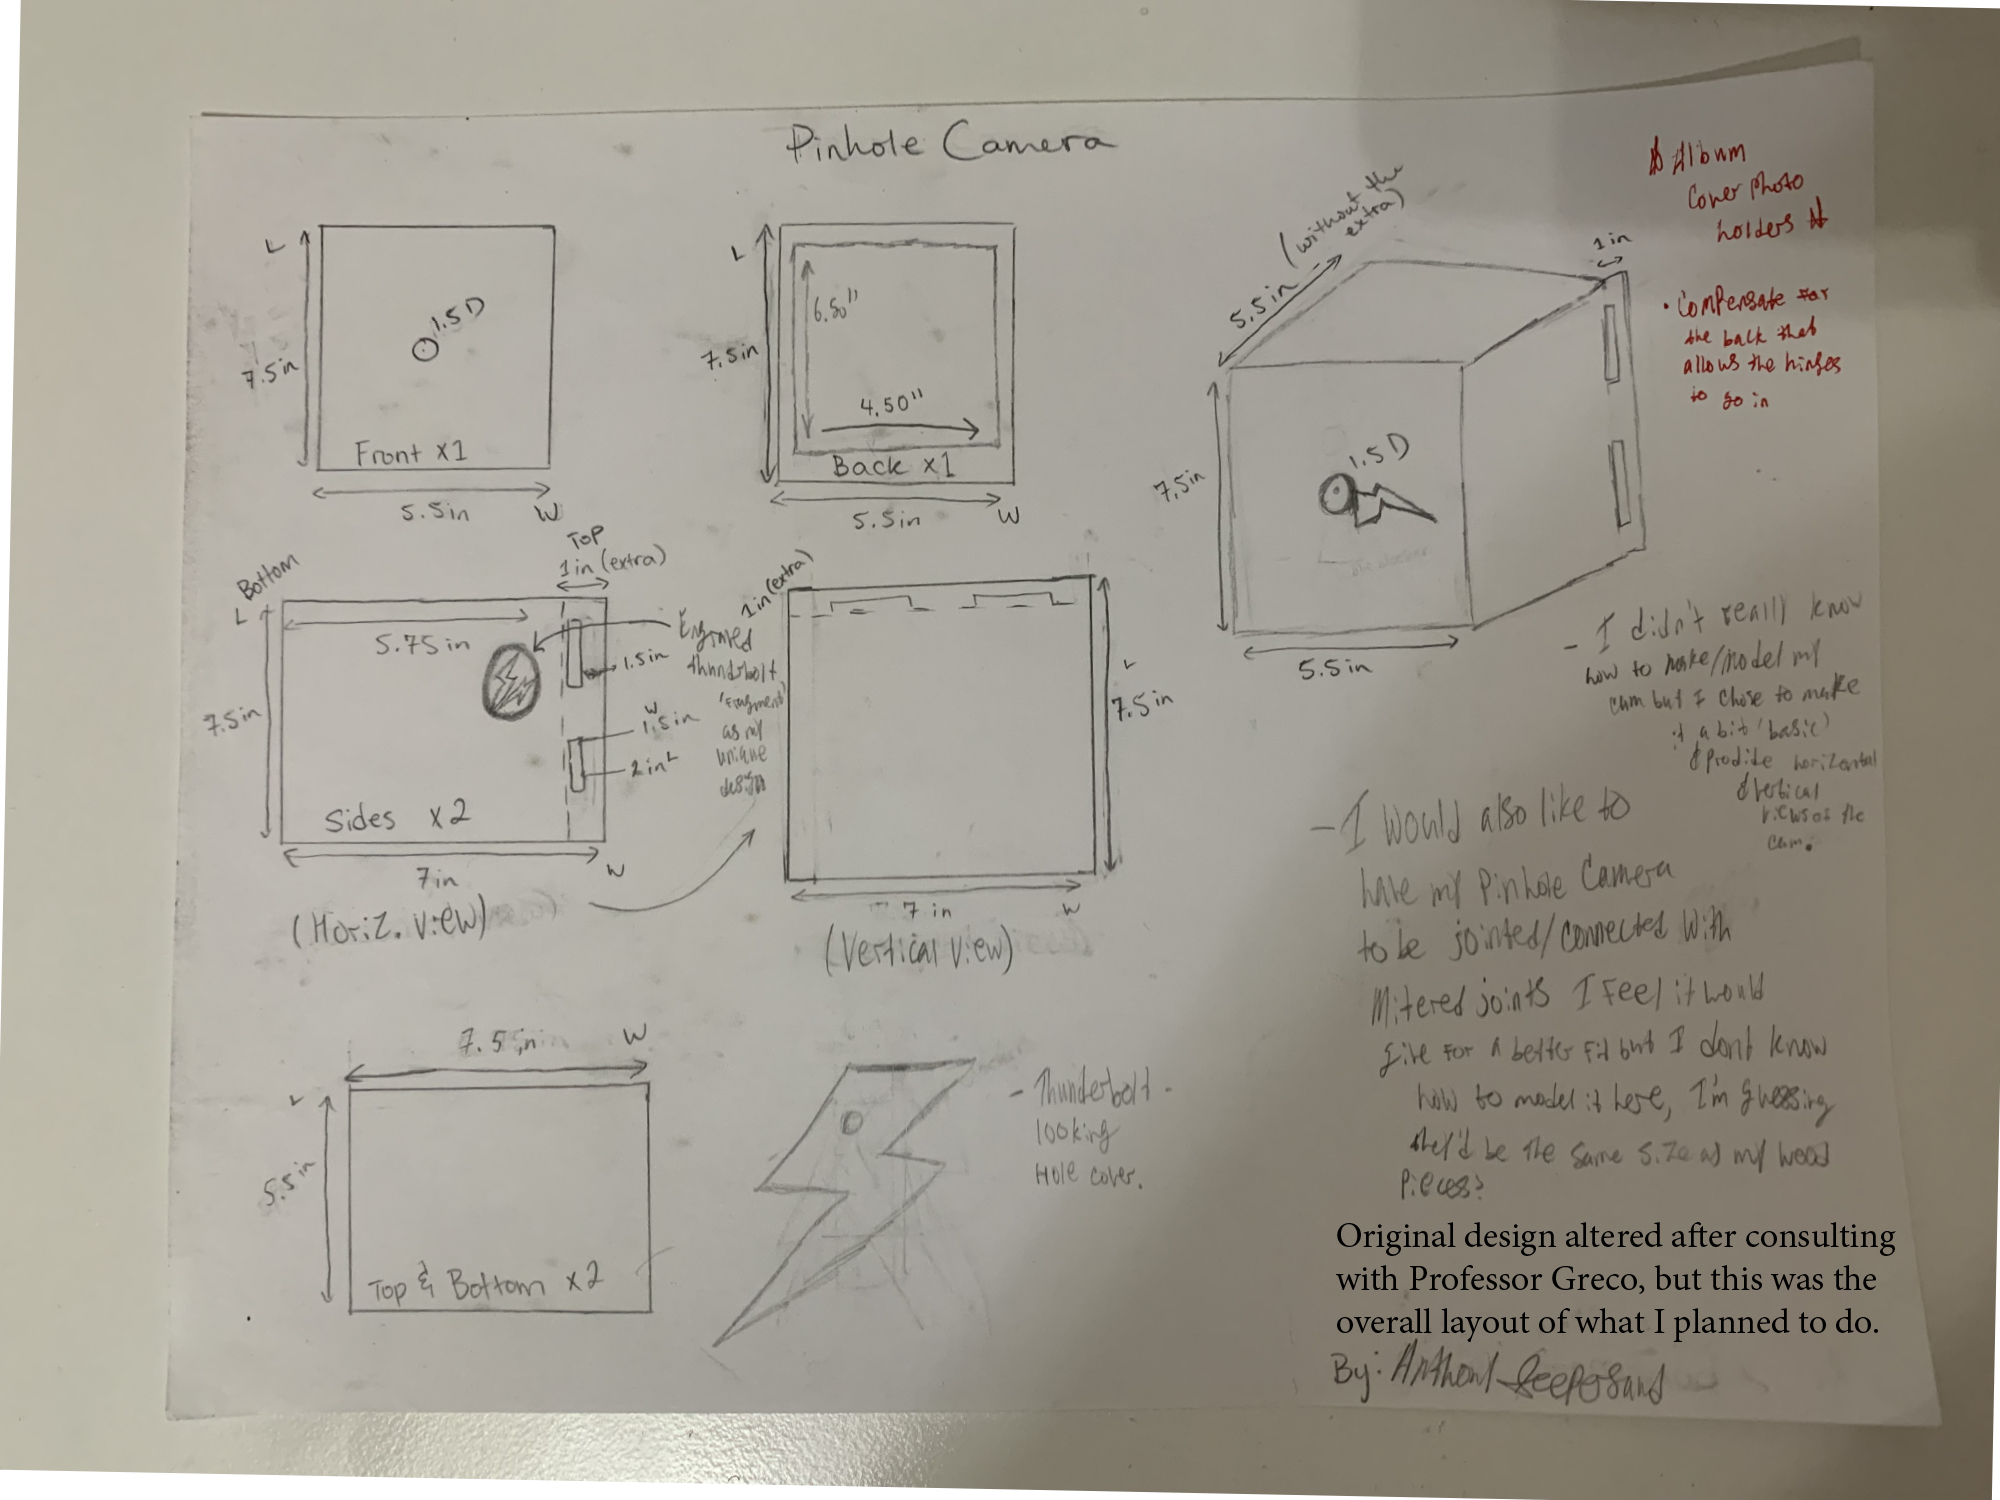 Pinhole Camera
L
7.5in
1.5 D
Front x1
5.5in
W
L
7.5in
6.50"
4.50"
Back x1
5.5in
W
5.5in
(without the
extra)
1in
7.5in
1.5 D
5.5in
Album
Cover Photo
holders
• Compensate for
the back that
allows the hinges
to go in
Bottom
Top
1in (extra)
L
5.75in
7.5in
1.5in
W
1.5in
2in L
Engraved
thunderbolt
as my
unique
design
Sides x2
7in
W
(Horiz. View)
1in (extra)
L
7.5in
7 in
W
(Vertical View)
- I didn't really know
how to make/model my
cam but I chose to make
it a bit 'basic'
horizontal
& vertical
views of the
cam.
- I would also like to
have my Pinhole Camera
to be jointed/connected with
Mitered joints I feel it would
give for a better fit but I dont know
how to model it here, I'm guessing
they'd be the same size as my wood
pieces?
7.5in
W
L
5.5in
Top & Bottom x2
- Thunderbolt -
looking
Hole cover.
Original design altered after consulting
with Professor Greco, but this was the
overall layout of what I planned to do.
By: Anthony